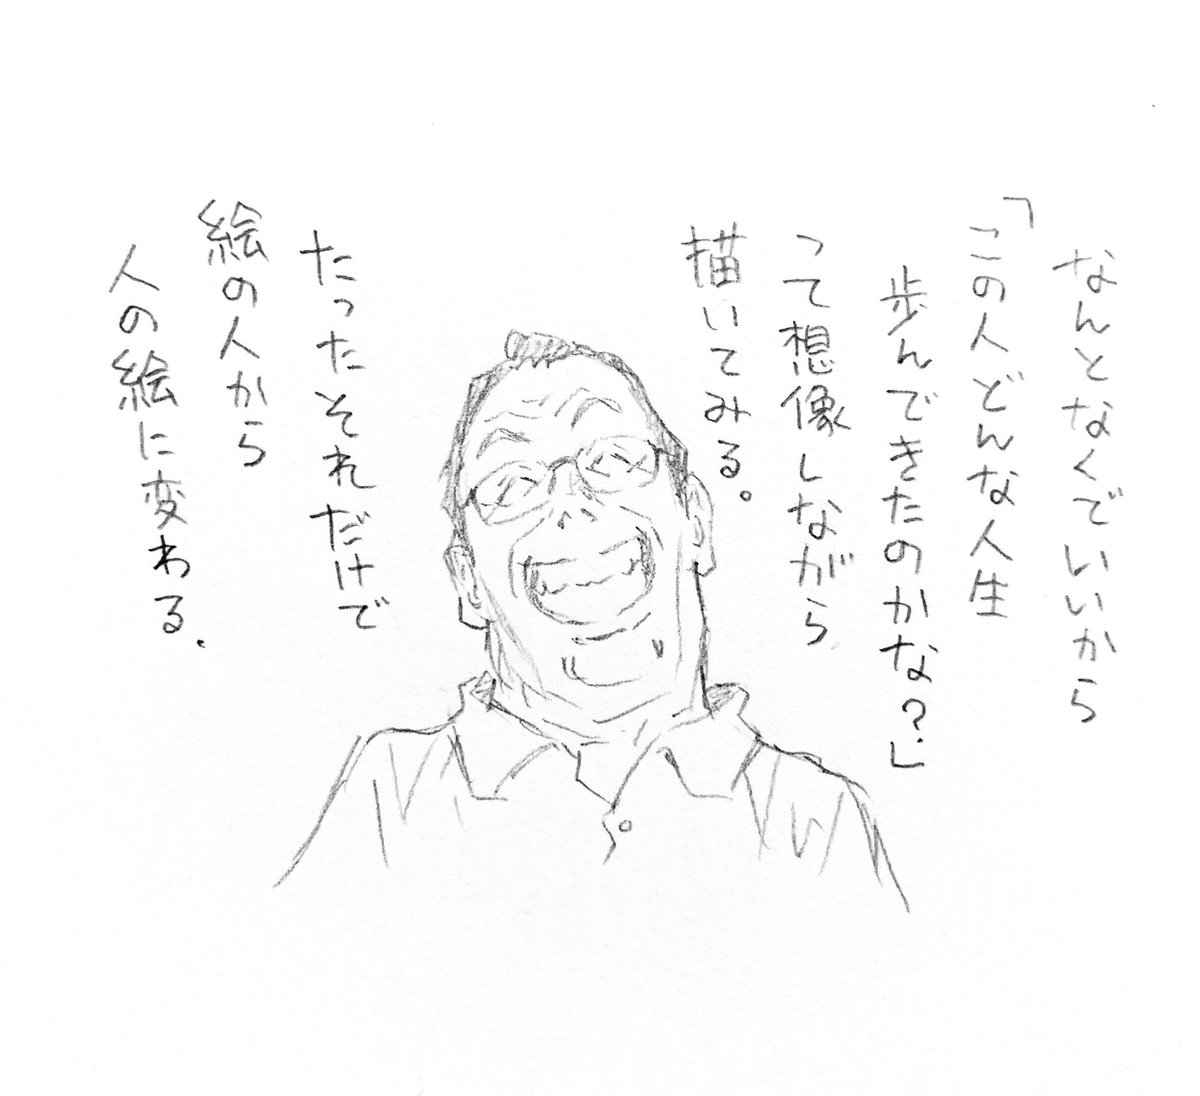 なんとなくでいいから
「この人どんな人生
歩んできたのかな?」
って想像しながら
描いてみる。
たったそれだけで
絵の人から
人の絵に変わる.